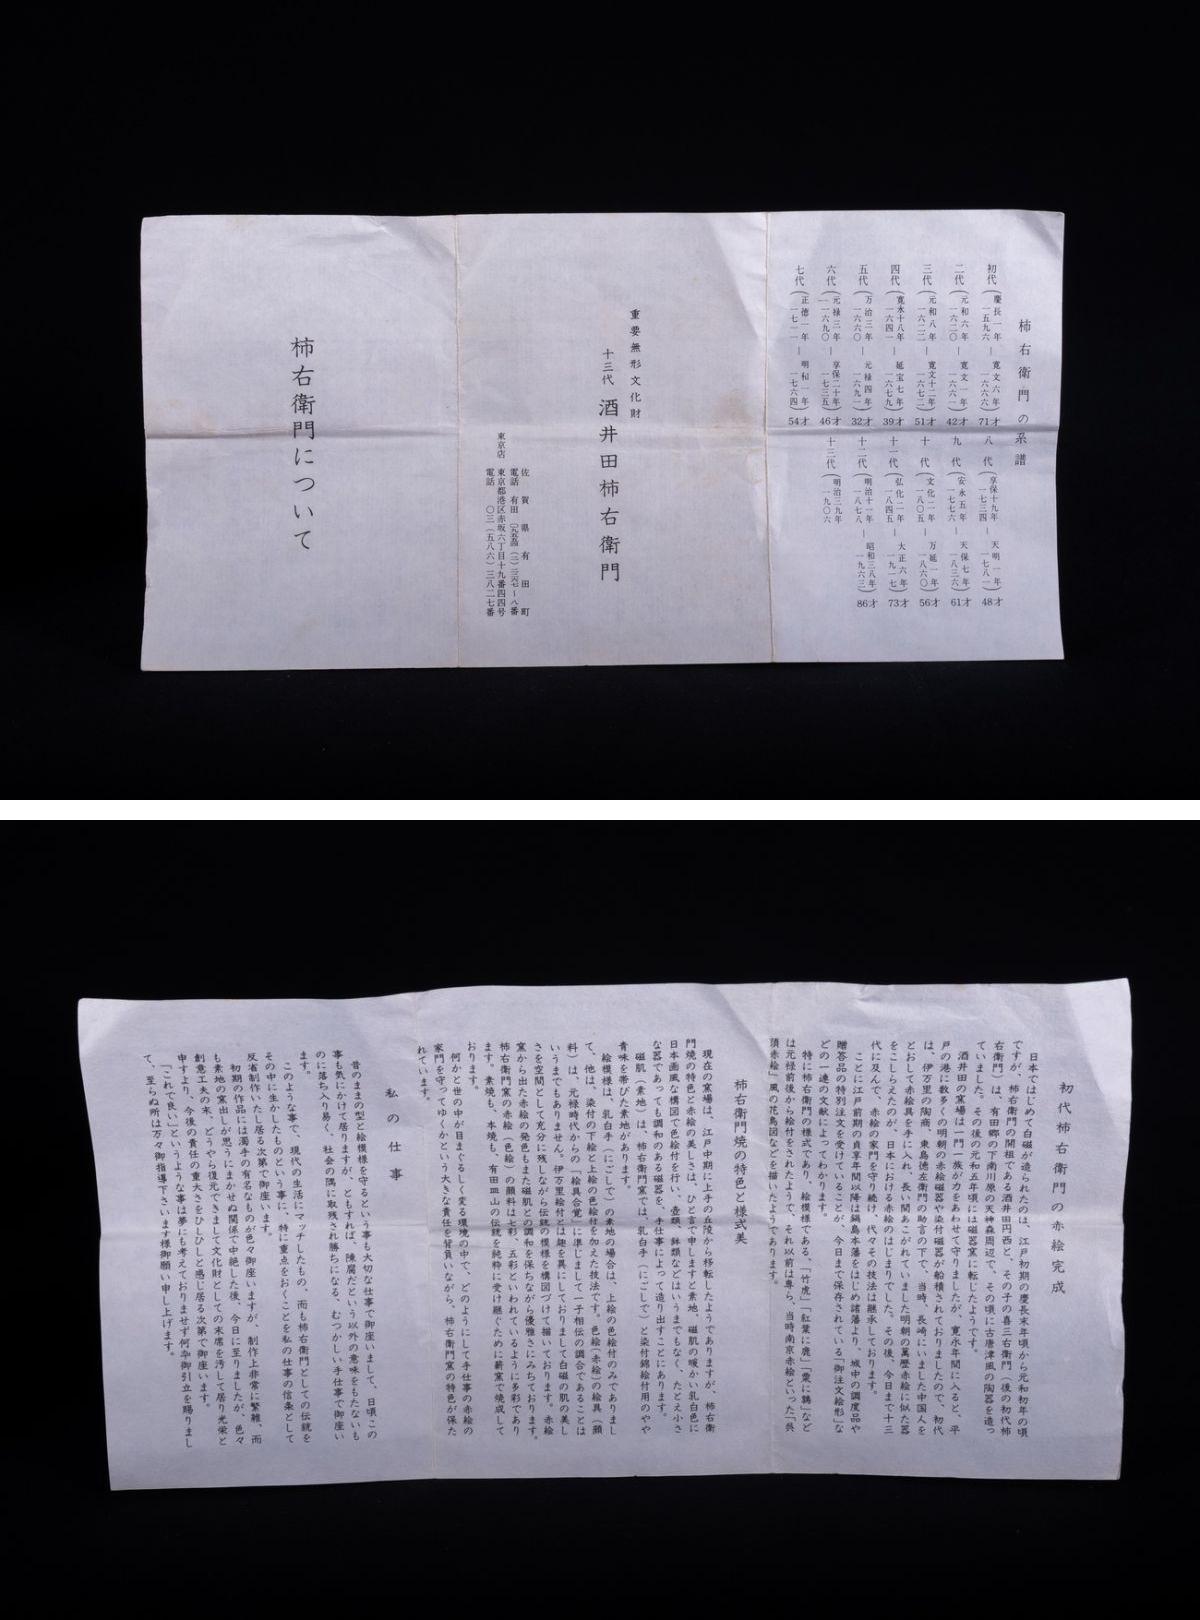 柿右衛門の系譜
初代(慶長一年 一五九六 — 寛文六年 一六六六)71才
二代(元和六年 一六二〇 — 寛文一年 一六六一)42才
三代(元和八年 一六二二 — 寛文十二年 一六七二)51才
四代(寛永十八年 一六四一 — 延宝七年 一六七九)39才
五代(万治三年 一六六〇 — 元禄四年 一六九一)32才
六代(元禄三年 一六九〇 — 享保二十年 一七三五)46才
七代(正徳一年 一七一一 — 明和一年 一七六四)54才
八代(享保十九年 一七三四 — 天明一年 一七八一)48才
九代(安永五年 一七七六 — 天保七年 一八三六)61才
十代(文化二年 一八〇五 — 万延一年 一八六〇)56才
十一代(弘化二年 一八四五 — 大正六年 一九一七)73才
十二代(明治十一年 一八七八 — 昭和三八年 一九六三)86才
十三代(明治三九年 一九〇六
重要無形文化財
十三代 酒井田柿右衛門
佐賀県有田町
電話 有田
東京店 東京都港区赤坂六丁目十九番四四号
電話 〇三(五八六)三八二七番
柿右衛門について
初代柿右衛門の赤絵完成
日本ではじめて白磁が造られたのは、江戸初期の慶長末年頃から元和初年の頃
ですが、柿右衛門の開祖である酒井田円西と、その子の喜三右衛門(後の初代柿
右衛門)は、有田郷の下南川原の天神森周辺で、その頃に古唐津風の陶器を造っ
ていました。その後の元和五年頃には磁器窯に転じたようです。
酒井田の窯場は一門一族が力をあわせて守りましたが、寛永年間に入ると、平
戸の港に数多くの明朝の赤絵磁器や染付磁器が船積されておりましたので、初代
は、伊万里の陶商、東島徳左衛門の助言の下で、当時、長崎にいました中国人を
とおして赤絵具を手に入れ、長い間あこがれていました明朝の萬歴赤絵に似た器
をこしらえたのが、日本における赤絵のはじまりでした。その後、今日まで十三
代に及んで、赤絵の家門を守り続け、代々その技法は継承しております。
ことに江戸前期の貞享年間以降は鍋島本藩をはじめ諸藩より、城中の調度品や
贈答品の特別注文を受けていることが、今日まで保存されている「御注文絵形」な
どの一連の文献によってわかります。
特に柿右衛門の様式であり、絵模様である、「竹虎」「紅葉に鹿」「粟に鶉」など
は元禄前後から絵付をされたようで、それ以前は専ら、当時南京赤絵といった「呉
須赤絵」風の花鳥図などを描いたようであります。
柿右衛門焼の特色と様式美
現在の窯場は、江戸中期に上手の丘陵から移転したようでありますが、柿右衛
門焼の特色と赤絵の美しさは、ひと言で申しますと素地、磁肌の暖かい乳白色に
日本画風な構図で色絵付を行い、壺類、鉢類などはいうまでもなく、たとえ小さ
な器であっても調和のある磁器を、手仕事によって造り出すことにあります。
磁肌(素地)は、柿右衛門窯では、乳白手(にごしで)と染付錦絵付用のやや
青味を帯びた素地があります。
絵模様は、乳白手(にごしで)の素地の場合は、上絵の色絵付のみでありまし
て、他は、染付の下絵と上絵の色絵付を加えた技法です。色絵(赤絵)の絵具(顔
料)は、元禄時代からの「絵具合覚」に準じまして一子相伝の調合であることは
いうまでもありません。伊万里絵付とは趣を異にしておりまして白磁の肌の美し
さを空間として充分に残しながら伝統の模様を構図づけて描いております。赤絵
窯から出た赤絵の発色もまた磁肌との調和を保ちながら優雅さにみちております。
柿右衛門窯の赤絵(色絵)の顔料は七彩、五彩といわれているように多彩であり
ます。素焼も、本焼も、有田皿山の伝統を純粋に受け継ぐために薪窯で焼成して
おります。
何かと世の中が目まぐるしく変る環境の中で、どのようにして手仕事の赤絵の
家門を守ってゆくかという大きな責任を背負いながら、柿右衛門窯の特色が保た
れています。
私の仕事
昔のままの型と絵模様を守るという事も大切な仕事で御座いまして、日頃この
事も気にかけて居りますが、ともすれば、陳腐だという以外の意味をもたないも
のに落ち入り易く、社会の隅に取残され勝ちになる、むつかしい手仕事で御座い
ます。
このような事で、現代の生活にマッチしたもの、而も柿右衛門としての伝統を
その中に生かしたものという事に、特に重点をおくことを私の仕事の信条として
反省制作いたし居る次第で御座います。
初期の作品には濁手の有名なものが色々御座いますが、制作上非常に繁雑、而
も素地の窯出しが思うにまかせぬ関係で中絶した後、今日に至りましたが、色々
創意工夫の末、どうやら復元できまして文化財としての末席を汚して居り光栄と
申すより、今後の責任の重大さをひしひしと感じ居る次第で御座います。
「これで良い」というような事は夢にも考えておりませず何卒御引立を賜りまし
て、至らぬ所は万々御指導下さいます様御願い申し上げます。